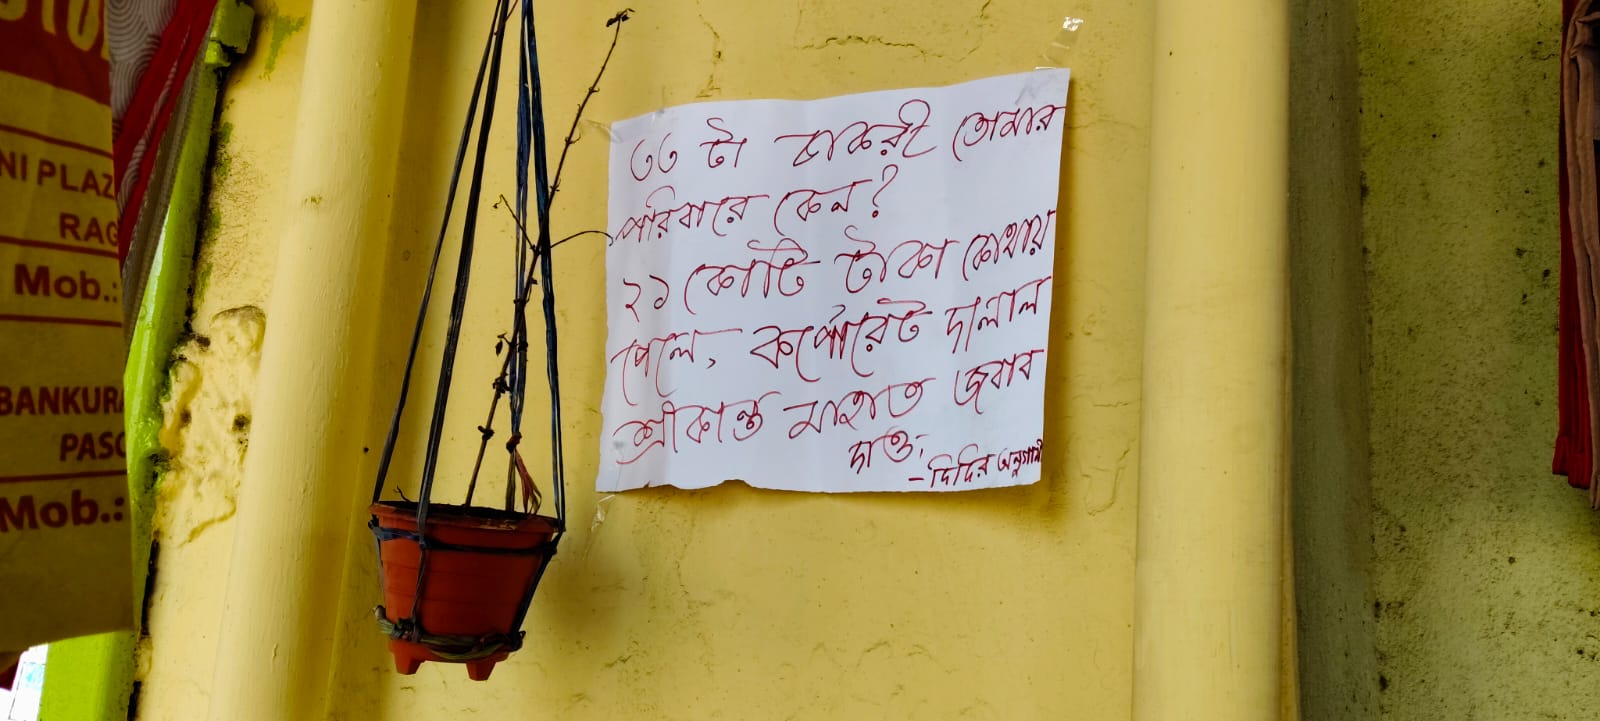 ৩৩ টা চাকরী তোমার
পরিবারে কেন?
২১ কোটি টাকা কোথায়
পেলে, কর্পোরেট দালাল
শ্রীকান্ত মাহাত জবাব
দাও;
- দিদির অনুগামী
NI PLAZ
RAG
Mob.:
BANKURA
PASC
Mob.: